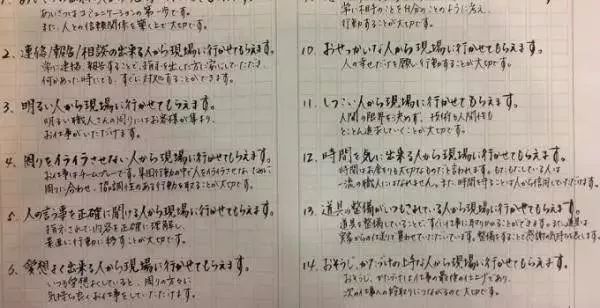 あいさつはコミュニケーションの第一歩です。
また、人との信頼関係を築く上で大切です。
2. 連絡/報告/相談の出来る人から現場に行かせてもらえます。
常に連絡、報告することで、指示を出した方に安心していただき
何かあった時にでも、すぐに対処することができます。
3. 明るい人から現場に行かせてもらえます。
明るい職人さんの周りにはお客様が集まり、
お仕事がいただけます。
4. 周りをイライラさせない人から現場に行かせてもらえます。
お仕事はチームプレーです。集団行動の中で人をイライラさせないために
周りに合わせ、協調性のある行動を取ることが大切です。
5. 人の言う事を正確に聞ける人から現場に行かせてもらえます。
指示された内容を正確に理解し、
実直に行動に移すことが大切です。
6. 愛想よく出来る人から現場に行かせてもらえます。
いつも愛想よくしていると、周りの方々に
気持ち良くお仕事をしていただけます。
常に相手のことを自分のことのように考え、
行動することが大切です。
10. おせっかいな人から現場に行かせてもらえます。
人の幸せだけを願い行動することが大切です。
11. しつこい人から現場に行かせてもらえます。
人間の限界を決めず、技術も人間性も
とことん追求していくことが大切です。
12. 時間を気に出来る人から現場に行かせてもらえます。
時間はお金よりも大切なものだと言われます。もたもたしている人は
一流の職人にはなれません。また時間を守ることは人から信用していただけます。
13. 道具の整備がいつもされている人から現場に行かせてもらえます。
道具を整備していることで、すぐに仕事に取りかかることができます。また、道具は
お客様からの仕事で買わせていただいています。整備をすることで感謝の気持ちも表します。
14. おそうじ、かたづけの上手な人から現場に行かせてもらえます。
おそうじ、かたづけは仕事の最後の仕上げであり、
次の仕事への段取りにつながるので大切です。